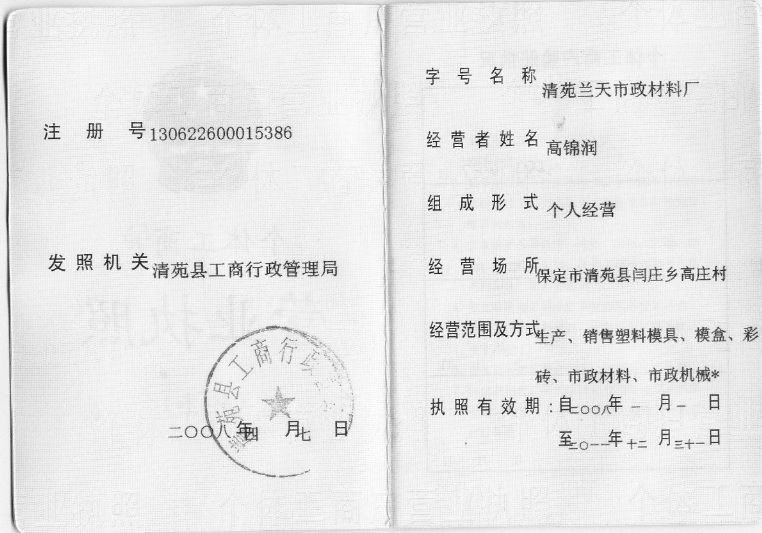 注册号130622600015386
发照机关清苑县工商行政管理局
清苑县工商行政
二〇〇八年四月七日
字号名称清苑兰天市政材料厂
经营者姓名高锦润
组成形式个人经营
经营场所保定市清苑县闫庄乡高庄村
经营范围及方式生产、销售塑料模具、模盒、彩
砖、市政材料、市政机械*
执照有效期：自二〇〇八年一月一日
至二〇一一年十二月三十一日